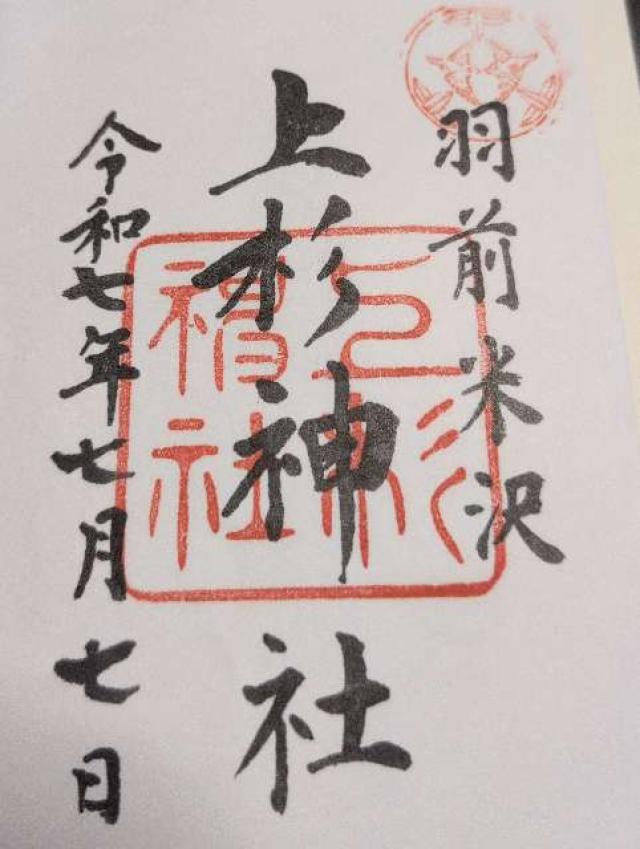 羽前米沢
上杉神社
令和七年七月七日
上杉神社